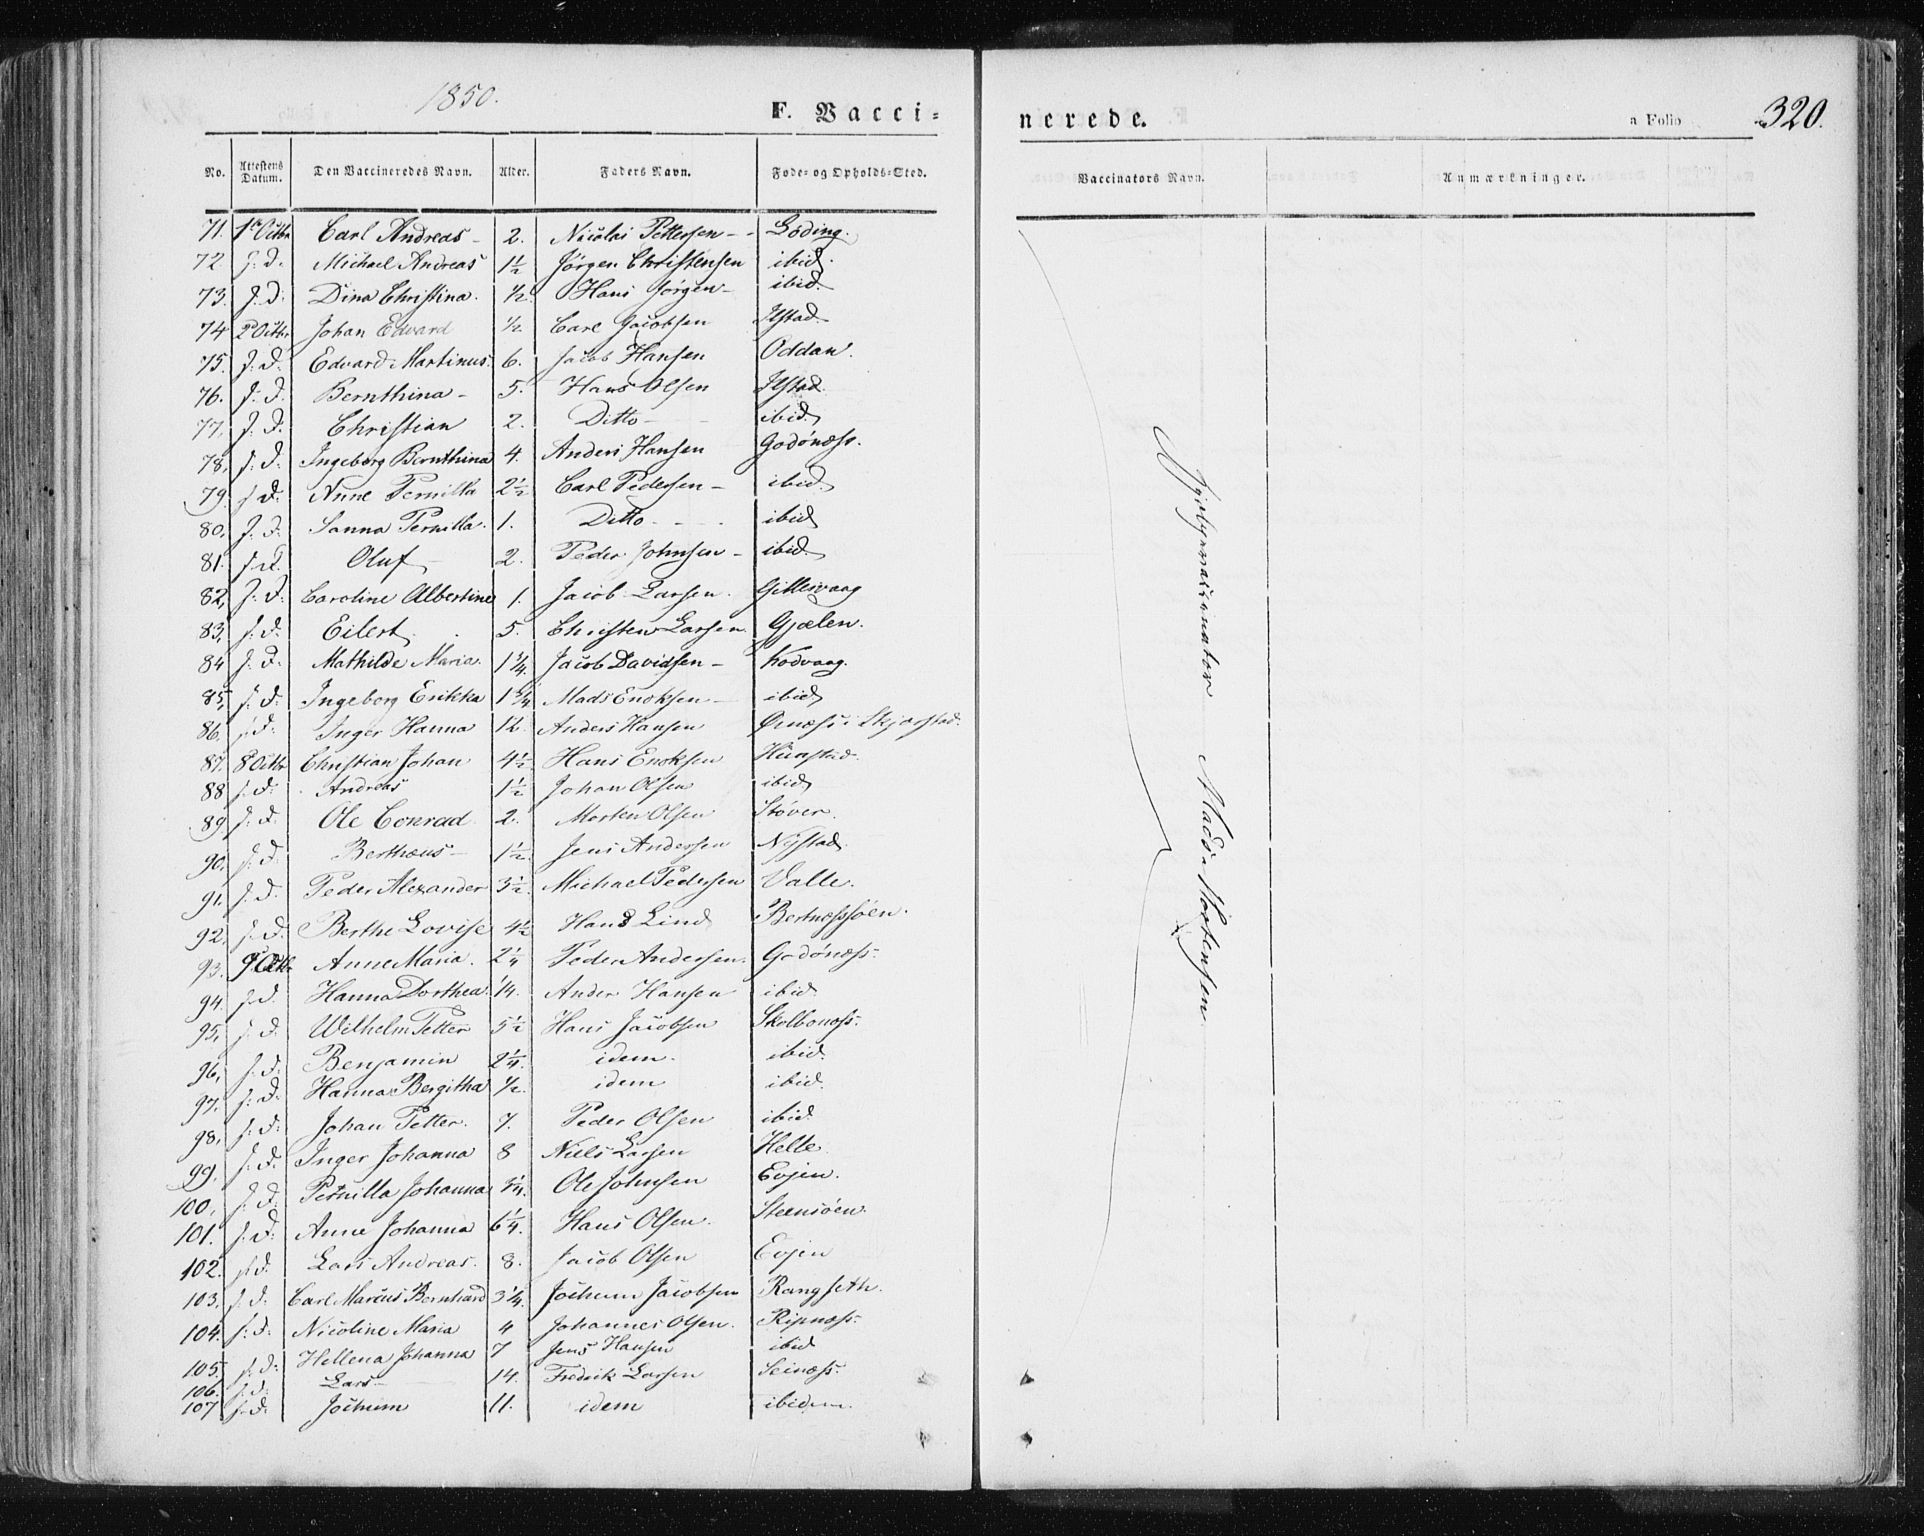 1850.
F. Vacci-
nerede.
a Folio 320.
No. Attestens Datum. Den Vaccineredes Navn. Alder. Faders Navn. Føde- og Opholds-Sted.
Vaccinators Navn. Anmærkninger.
71. 1ste Octbr Carl Andreas 2. Nicolai Pettersen Løding.
72. s: d: Michael Andreas 1½ Jörgen Christensen ibid.
73. s: d: Dina Christina. ½ Hans Jörgen ibid.
74 2 Octbr Johan Edvard ½ Carl Jacobsen Ilstad.
75. s: d: Edvard Martinus. 6. Jacob Hansen Oddan.
76. s: d. Bernthina 5. Hans Olsen Ilstad.
77. s: d. Christian 2. Ditto ibid
78. s: d: Ingeborg Bernthina 4. Anders Hansen Godónæss.
79. s d: Anne Pernilla 2½ Carl Pedersen ibid.
80. s: d. Sanna Pernilla. 1. Ditto ibid
81. s d. Oluf 2. Peder Johnsen ibid
82. s: d: Caroline Albertine 1. Jacob Larsen. Gillesvaag
83. s: d: Eilert 5. Christen Larsen Gjælen.
84 s: d. Mathilde Maria. 1¾. Jacob Davidsen Kodvaag.
85. s: d. Ingeborg Erikka 1¾ Mads Enoksen ibid
86. s d. Inger Hanna ½. Anders Hansen Ørnæss i Skjærstad.
87. 8 Octbr Christian Johan 4½ Hans Enoksen Hunstad.
88 s: d. Andreas 1½ Johan Olsen ibid
89 s: d. Ole Conrad 2. Morten Olsen Støver.
90. s: d: Berthæus 1½. Jens Andersen Nÿstad.
91. s: d. Peder Alexander 3½. Michael Pedersen Valle.
92. s: d. Berthe Lovise 4½ Hans Lind Bertnæssöen.
93. 9 Octb. Anne Maria. 2¼ Peder Andersen. Godónæss.
94. s: d. Hanna Dorthea. ¼. Ander Hansen ibid.
95. s: d. Wilhelm Petter 5½ Hans Jacobsen Skolbonæss.
96. s: d: Benjamin 2¼. idem. ibid.
97. s: d. Hanna Bergitha ½. idem ibid.
98. s: d. Johan Petter. 7. Peder Olsen ibid.
99. s: d. Inger Johanna 8 Niels Larsen Helle
100. s: d. Pernilla Johanna ¾. Ole Johnsen Evjen.
101. s: d: Anne Johanna 6¼. Hans Olsen. Steensöen.
102. s: d. Lars Andreas. 8. Jacob Olsen Evjen
103. s: d. Carl Marcus Bernhard 3¼. Jochum Jacobsen Rangseth.
104. s: d: Nicoline Maria 4 Johannes Olsen. Ripnæss.
105. s: d: Hellena Johanna 7 Jens Hansen ibid
106. s: d: Lars 14. Fredrik Larsen Seinæss.
107 s: d. Jochum 11. idem ibidem.
Hjelpevaccinator Mads Mortensen